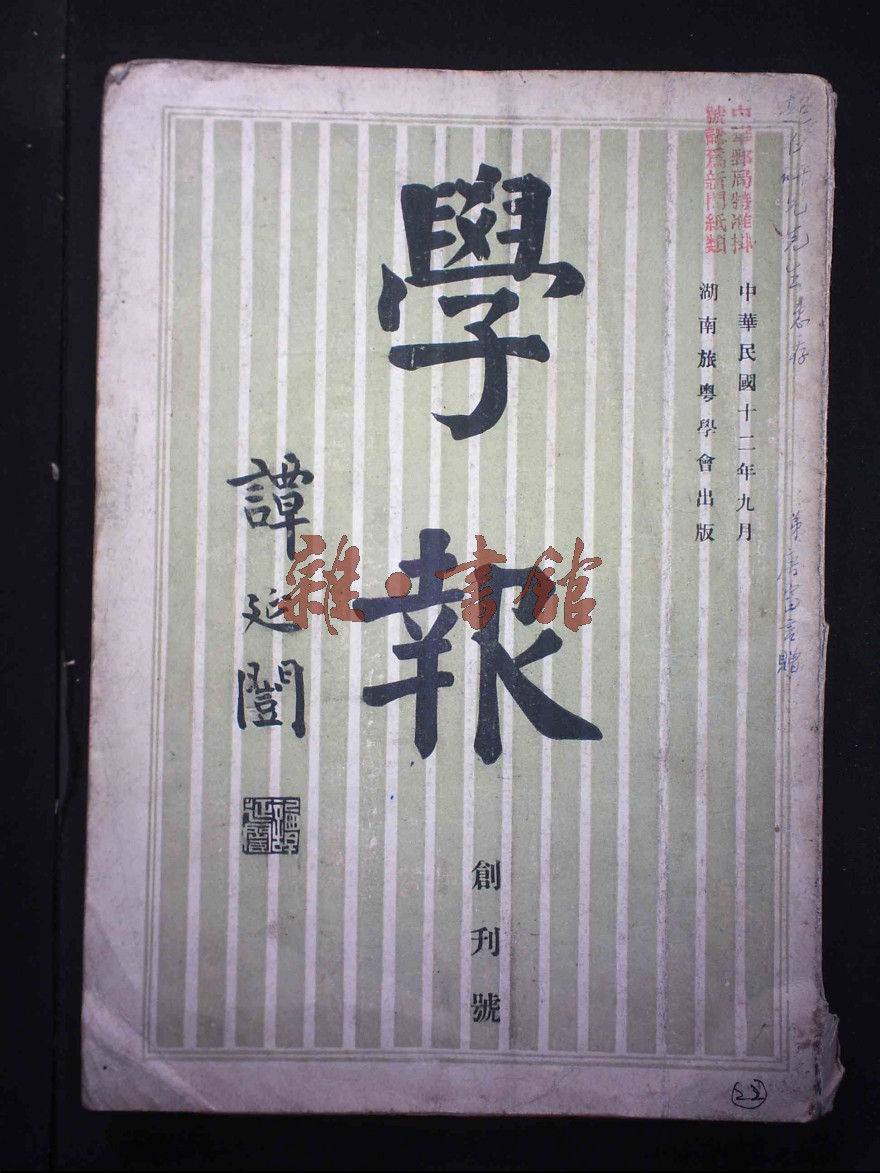 中華郵局特准掛
號認爲新聞紙類
中華民國十二年九月
湖南旅粤學會出版
學報
創刊號
譚延闓
雜·書館
先生惠存
弟唐富言贈
22